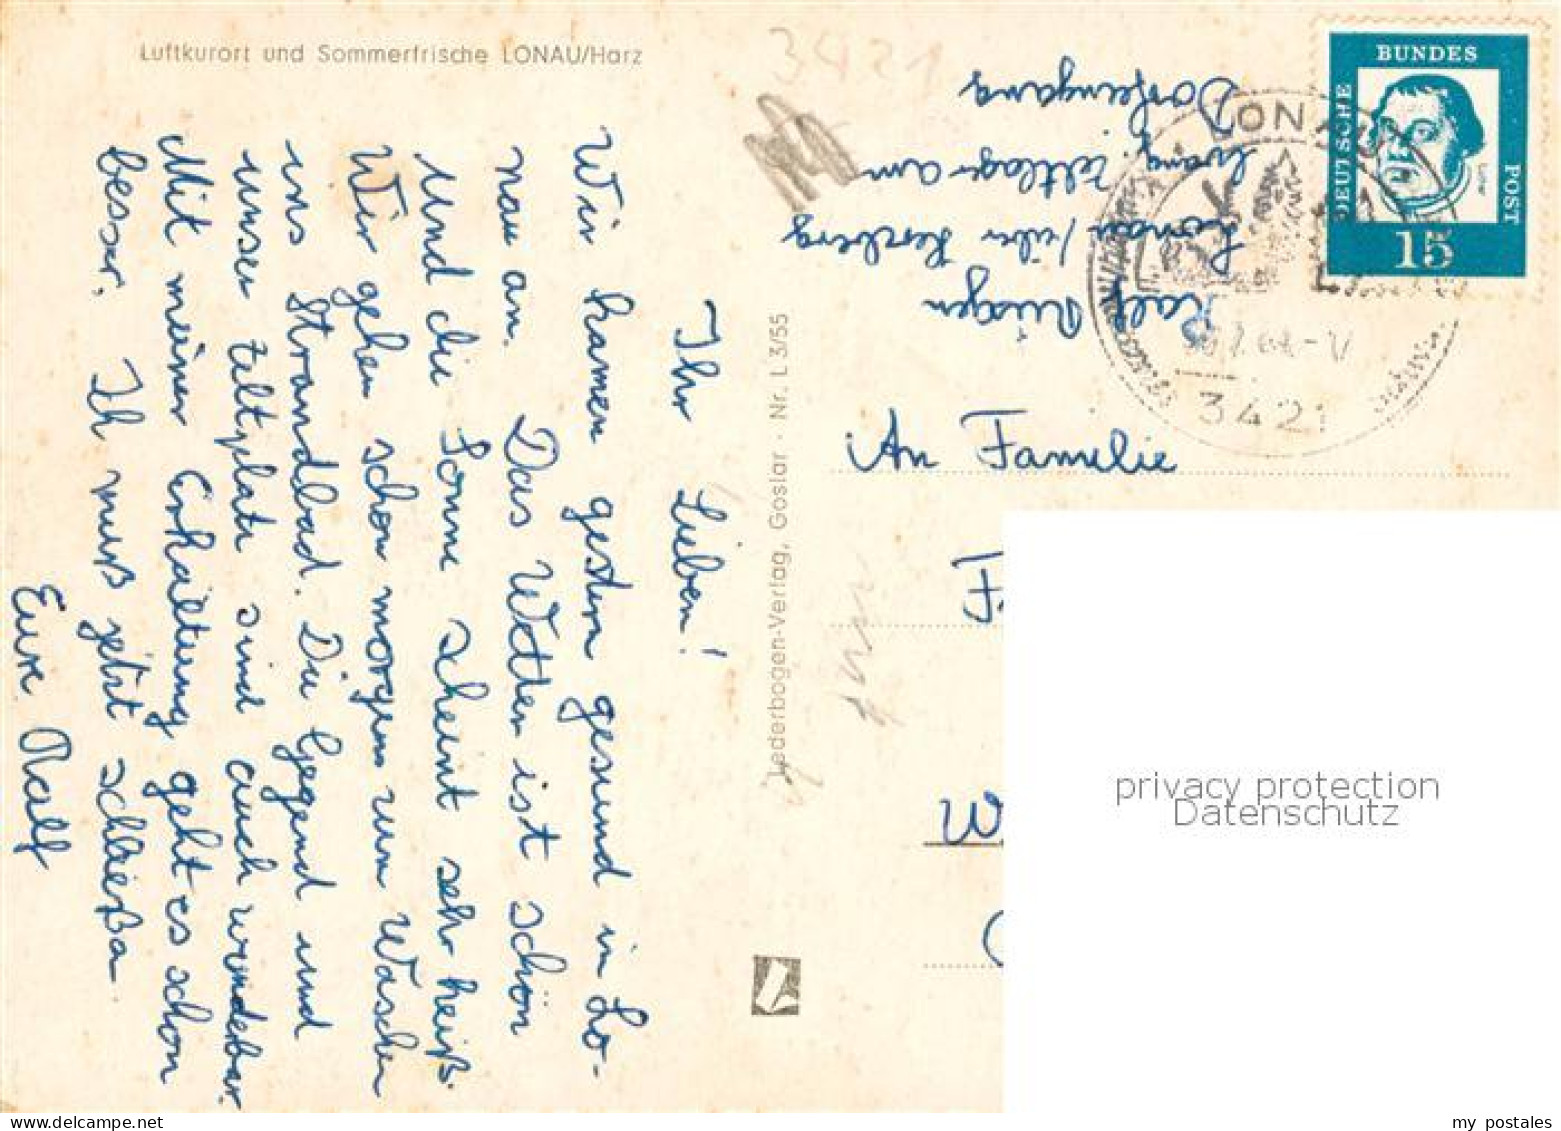 Luftkurort und Sommerfrische LONAU/Harz
3421
Ihr Lieben!
Wir kamen gestern gesund in Lo-
nau an. Das Wetter ist schön
und die Sonne scheint sehr heiß.
Wir gehen schon morgen zum Waschen
ins Strandbad. Die Gegend und
unser Zeltplatz sind auch wunderbar.
Mit meiner Erkältung geht es schon
besser. Ich muß jetzt schließen
Eure Ralf
Jederbogen-Verlag, Goslar · Nr. L 3/55
Ralf
Lonau / über Herzberg
Evang. Zeltlager am
Dorfeingang
DEUTSCHE
BUNDES
POST
15
LONAU
3421
An Familie
privacy protection
Datenschutz
my postales